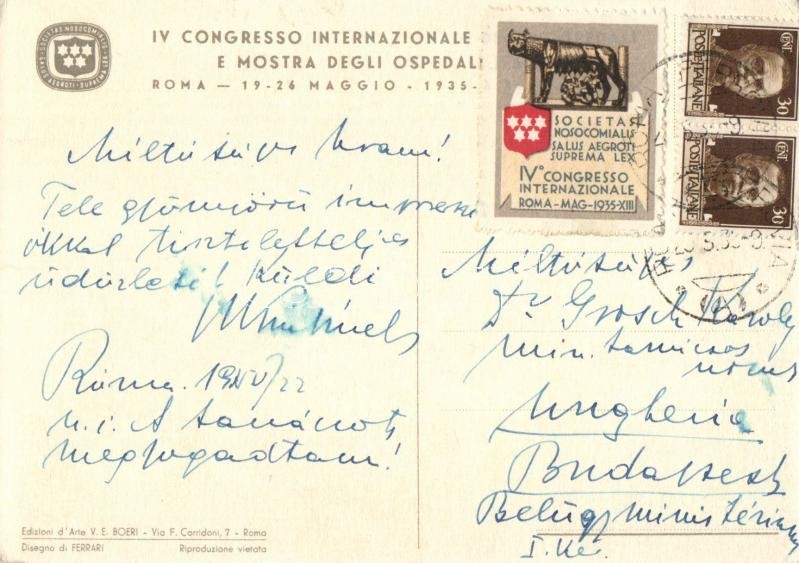 IV CONGRESSO INTERNAZIONALE
E MOSTRA DEGLI OSPEDAL
ROMA — 19-26 MAGGIO - 1935-
SOCIETAS NOSOCOMIALIS
SALUS AEGROTI SUPREMA LEX
SOCIETAS
NOSOCOMIALIS
SALUS AEGROTI
SUPREMA LEX
IV° CONGRESSO
INTERNAZIONALE
ROMA-MAG-1935-XIII
30 CENT
POSTE ITALIANE
30 CENT
POSTE ITALIANE
Méltóságos Uram!
Tele gyönyörű impressi
ókkal tiszteletteljes
üdvözlet! Küldi
Róma. 1935 V/22
u.i. A tanácsot
megfogadtam!
Méltóságos
Dr Grosch Károly
min. tanácsos
úrnak
Ungheria
Budapest
Belügyminisztérium
I. ker.
Edizioni d'Arte V. E. BOERI - Via F. Corridoni, 7 - Roma
Disegno di FERRARI Riproduzione vietata